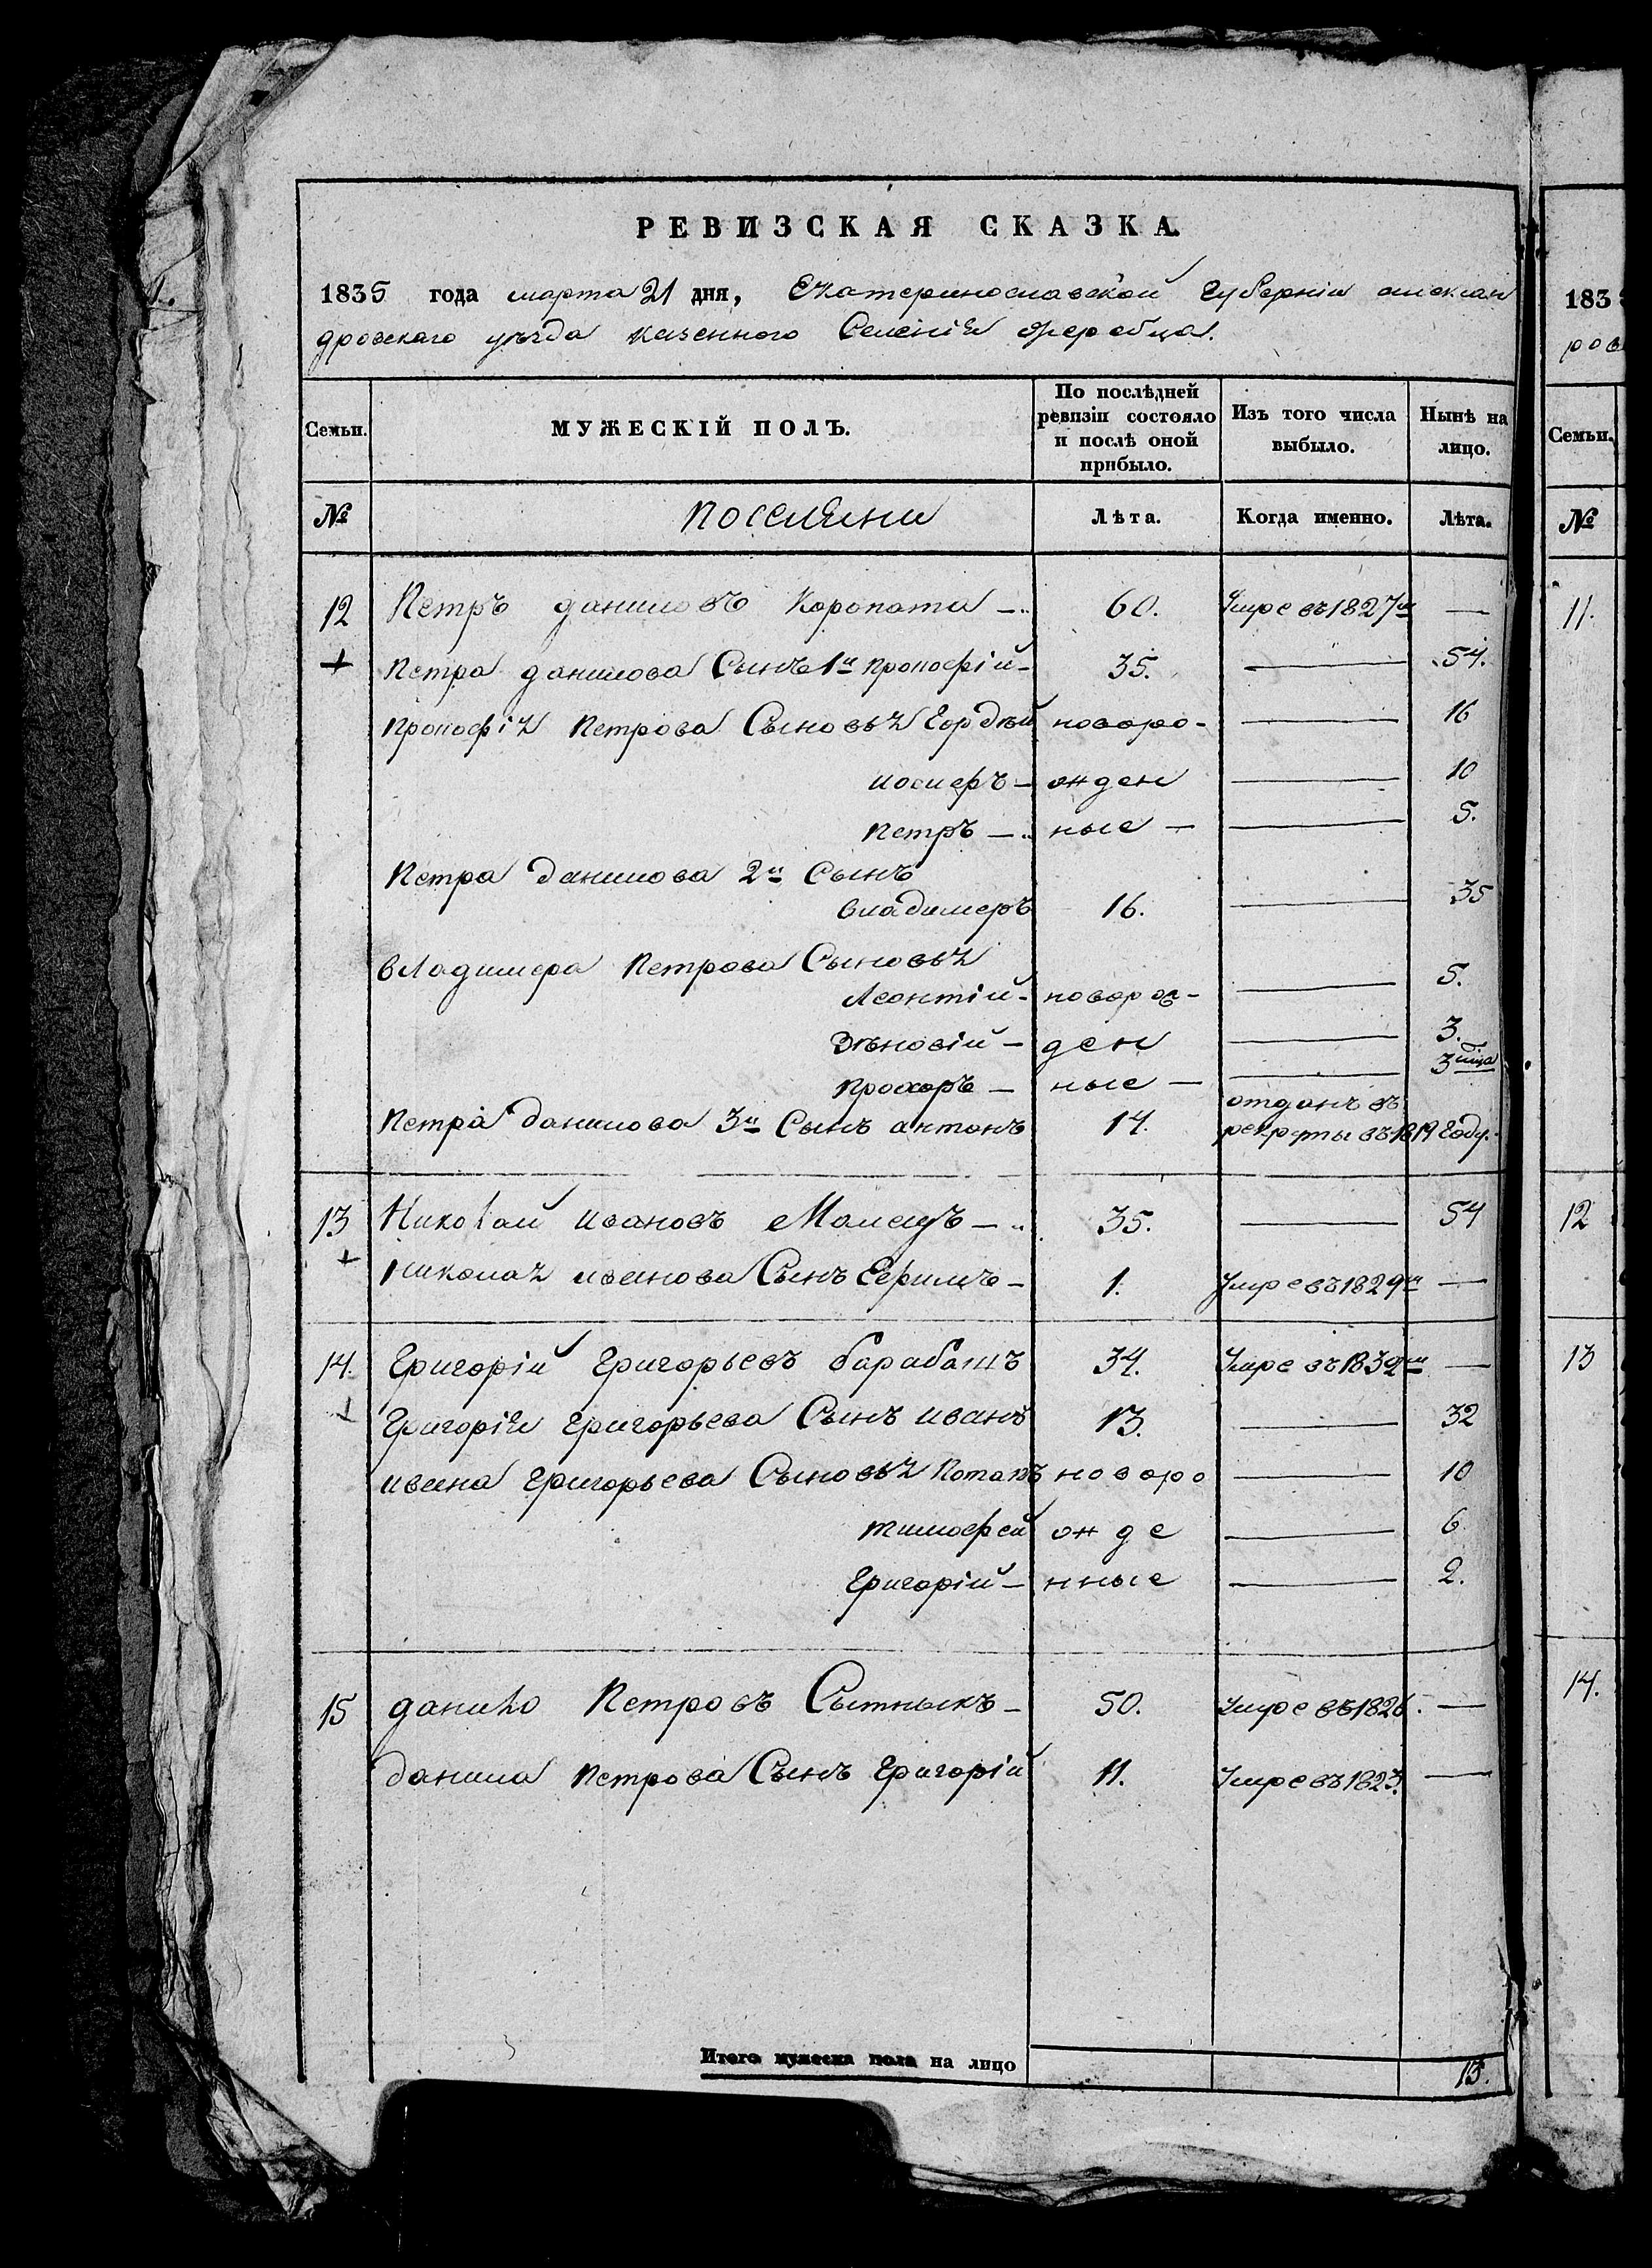 РЕВИЗСКАЯ СКАЗКА.
1835 года марта 21 дня, Екатеринославской Губерніи алексан
дровскаго уѣзда казенного Селенія Жеребца.
Семьи. МУЖЕСКІЙ ПОЛЪ. По послѣдней ревизіи состояло и послѣ оной прибыло. Изъ того числа выбыло. Нынѣ на лицо.
№ поселяни Лѣта. Когда именно. Лѣта.
12 Петръ даниловъ Коропата 60. Умре въ 1827м —
+ Петра данилова Сынъ 1й прокофій 35. — 54.
прокофія Петрова Сыновья Гордѣй новоро- — 16
иосиеръ — жден — 10
петръ — ные — — 5.
Петра данилова 2й Сынъ
владимеръ 16. — 35
владимера Петрова Сыновья
Леонтій - новорож- — 5.
Зѣновій — ден — 3.
прохоръ — ные — — 3 мца
Петра данилова 3й Сынъ антонъ 14. отданъ въ
рекруты въ 1819 Году.
13 Николай ивановъ Мамец 35. — 54
+ николая иванова Сынъ Ефимъ — 1. Умре въ 1829м —
14. Григорій Григорьевъ барабашъ 34. Умре въ 1832м —
+ Григорія Григорьева Сынъ иванъ 13. — 32
ивана Григорьева Сыновья Потапъ новоро — 10
тимофей жде — 6
Григорій — нные — 2.
15 данило Петровъ Сытныкъ — 50. Умре въ 1826. —
данила петрова Сынъ Григорій 11. Умре въ 1823. —
Итого мужеска пола на лицо 13.
183
ров
Семьи.
№
11.
12
13
14.